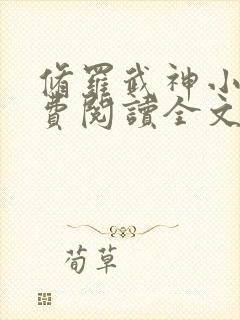 脩羅武神小
費閱讀全文
荀草